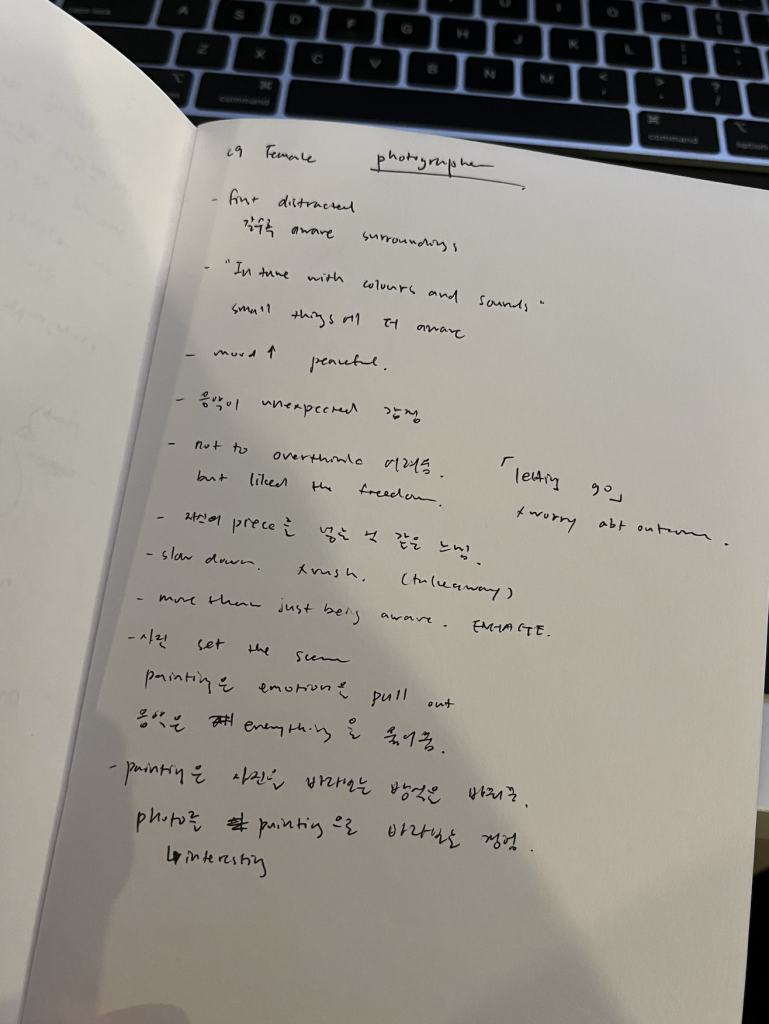 A S D F G H J K L
Z X C V B N M < , > . ? /
command
command
option
29 Female photographer
- first distracted
갈수록 aware surroundings
- "In tune with colours and sounds"
small things에 더 aware
- mood ↑ peaceful.
- 음악이 unexpected 감정
- not to overthink 어려움.
but liked the freedom.
「letting go」
x worry abt outcome.
- 자신의 piece를 넘는 것 같은 느낌.
- slow down. x rush. (takeaway)
- more than just being aware. ENGAGE.
- 사진 set the scene
painting은 emotion을 pull out
음악은 everything을 묶어줌.
- painting은 사진을 바라보는 방식을 바꿔줌.
photo를 painting으로 바라보는 경험.
↳ interesting